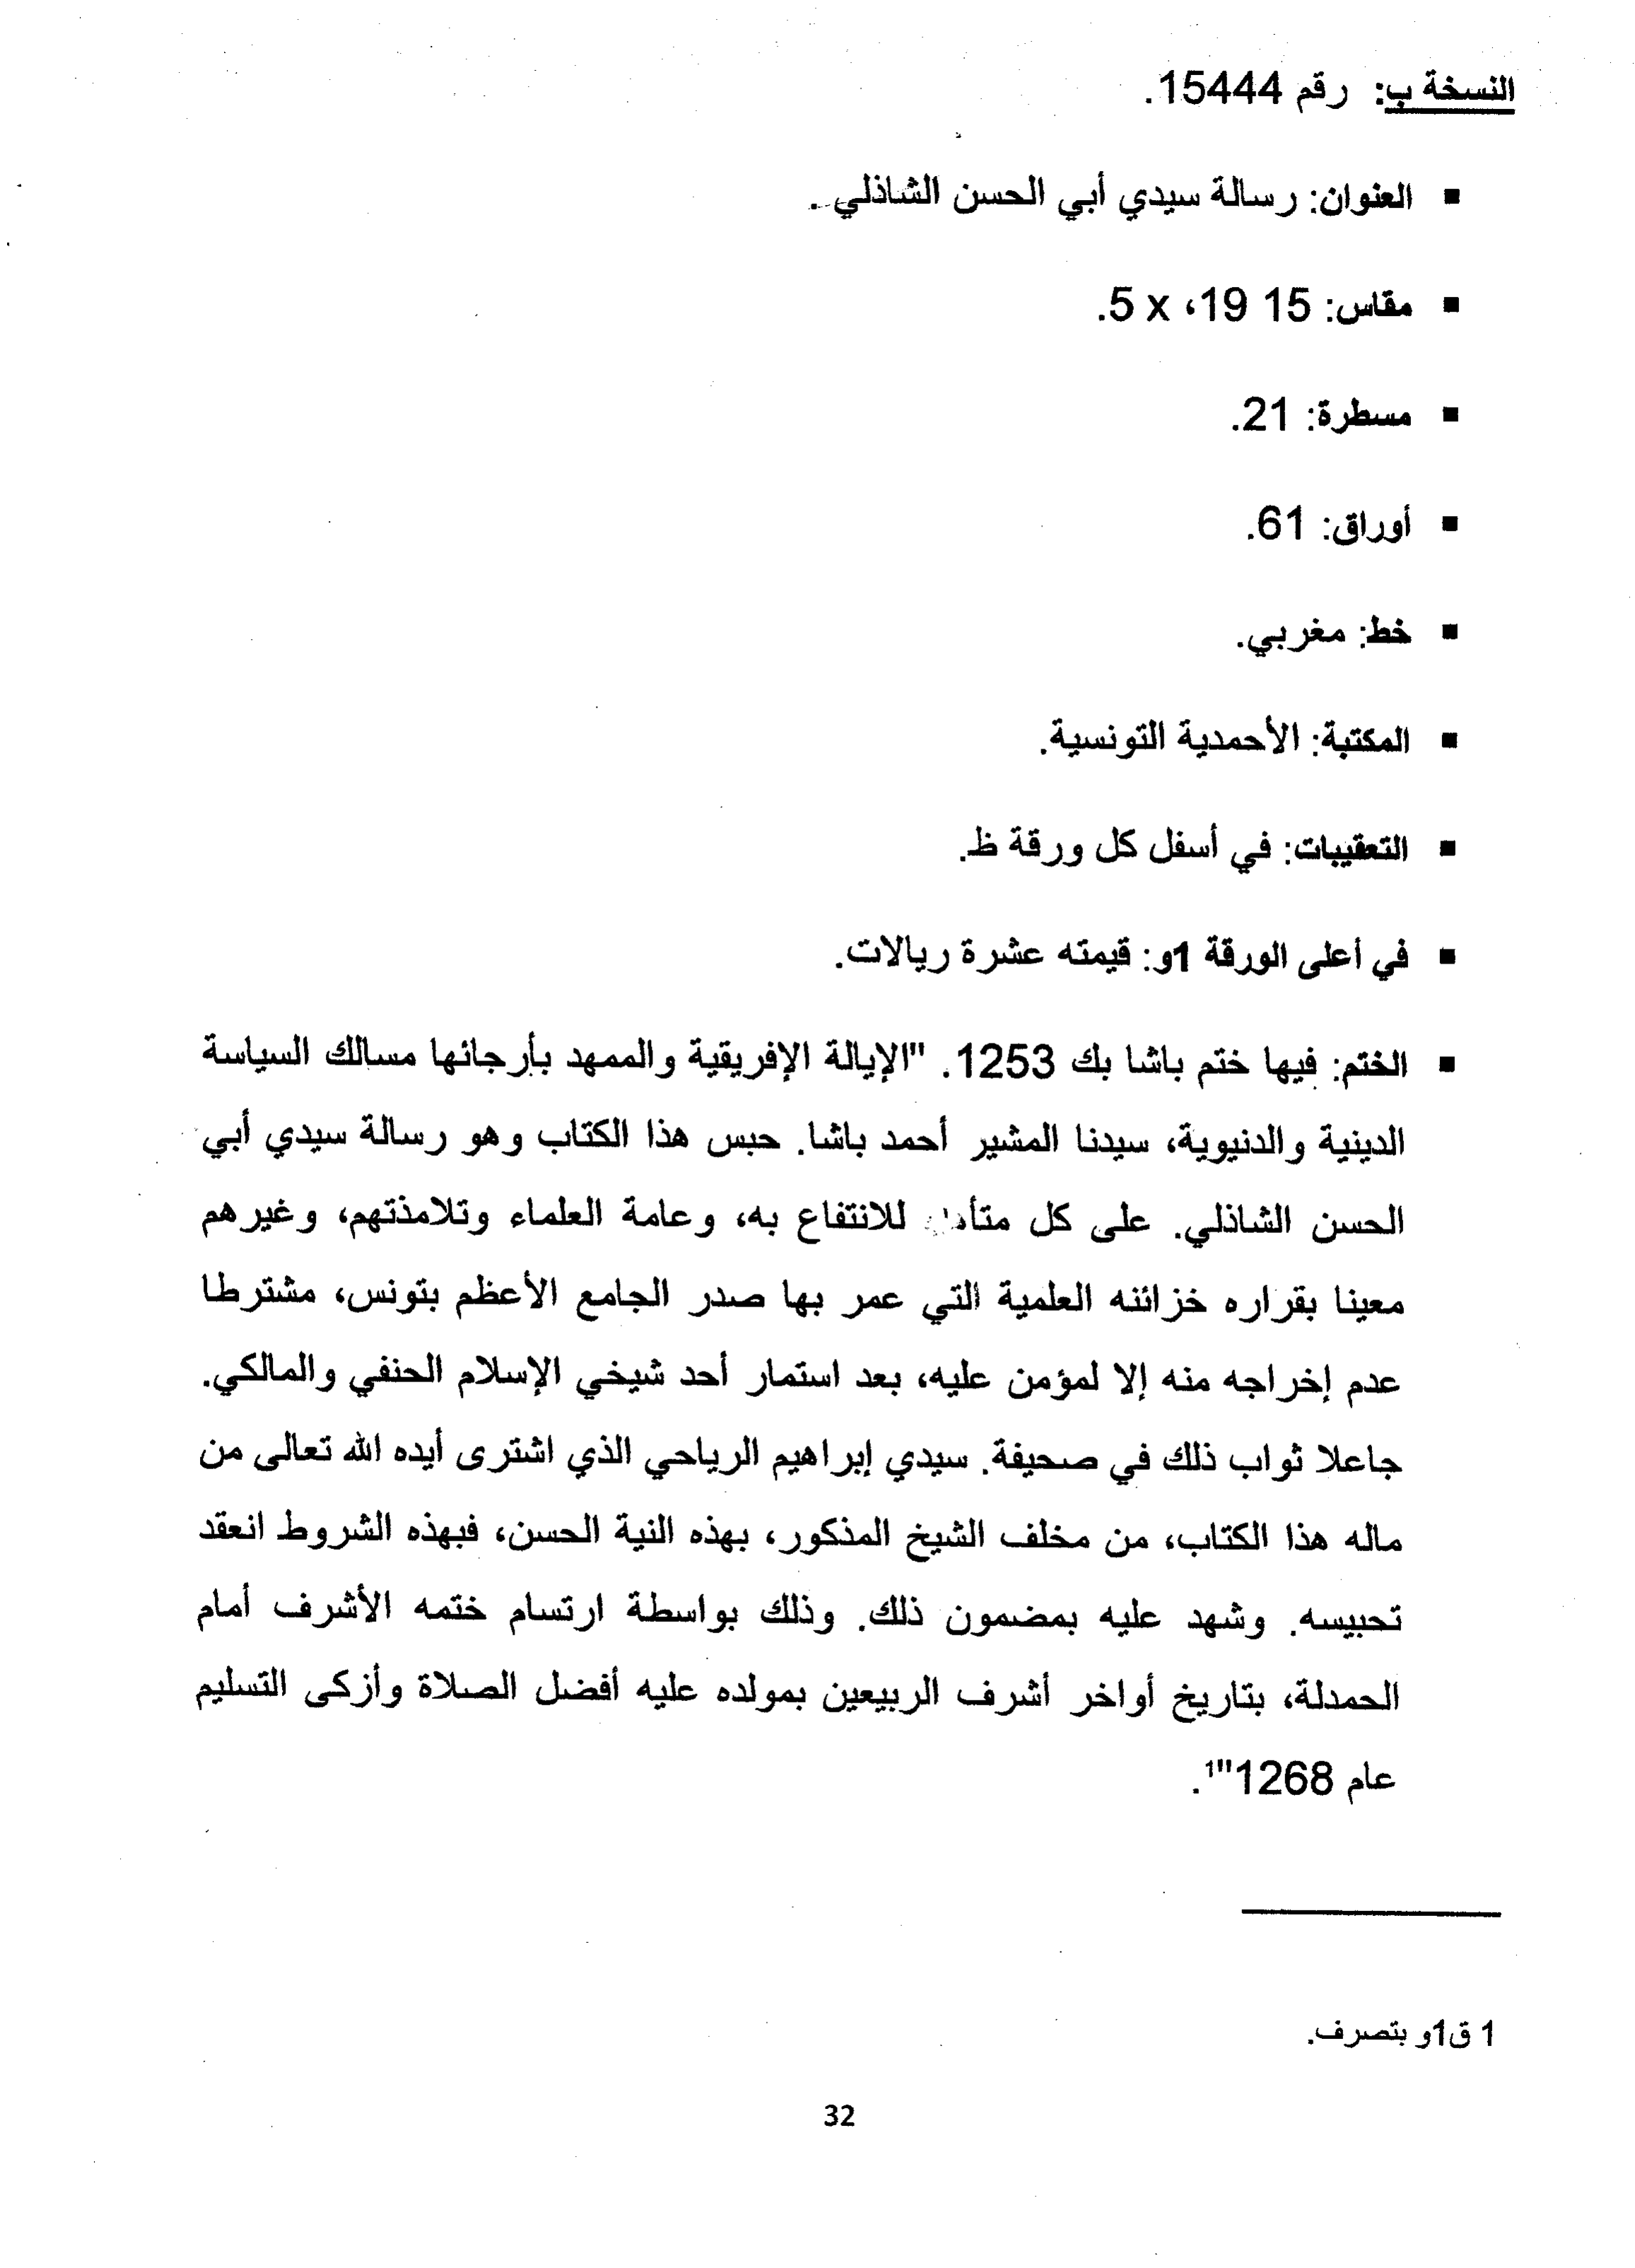 النسخة ب: رقم 15444.
▪ العنوان: رسالة سيدي أبي الحسن الشاذلي.
▪ مقاس: 15 19، x 5.
▪ مسطرة: 21.
▪ أوراق: 61.
▪ خط: مغربي.
▪ المكتبة: الأحمدية التونسية.
▪ التعقيبات: في أسفل كل ورقة ظ.
▪ في أعلى الورقة 1و: قيمته عشرة ريالات.
▪ الختم: فيها ختم باشا بك 1253. "الإيالة الإفريقية والممهد بأرجائها مسالك السياسة
الدينية والدنيوية، سيدنا المشير أحمد باشا. حبس هذا الكتاب وهو رسالة سيدي أبي
الحسن الشاذلي. على كل للانتفاع به، وعامة العلماء وتلامذتهم، وغيرهم
معينا بقراره خزائنه العلمية التي عمر بها صدر الجامع الأعظم بتونس، مشترطا
عدم إخراجه منه إلا لمؤمن عليه، بعد استمار أحد شيخي الإسلام الحنفي والمالكي.
جاعلا ثواب ذلك في صحيفة. سيدي إبراهيم الرياحي الذي اشترى أيده الله تعالى من
ماله هذا الكتاب، من مخلف الشيخ المذكور، بهذه النية الحسن، فبهذه الشروط انعقد
تحبيسه. وشهد عليه بمضمون ذلك. وذلك بواسطة ارتسام ختمه الأشرف أمام
الحمدلة، بتاريخ أواخر أشرف الربيعين بمولده عليه أفضل الصلاة وأزكى التسليم
عام 1268"¹.
1 ق1و بتصرف.
32